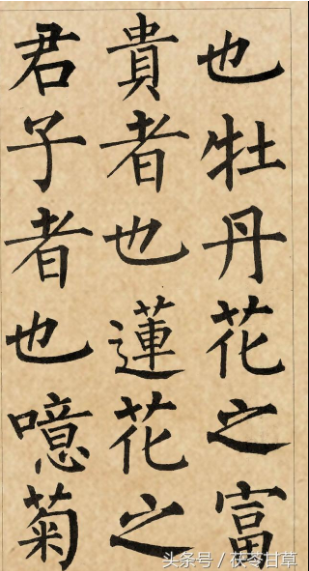 也牡丹花之富
貴者也蓮花之
君子者也噫菊
头条号／茯苓甘草